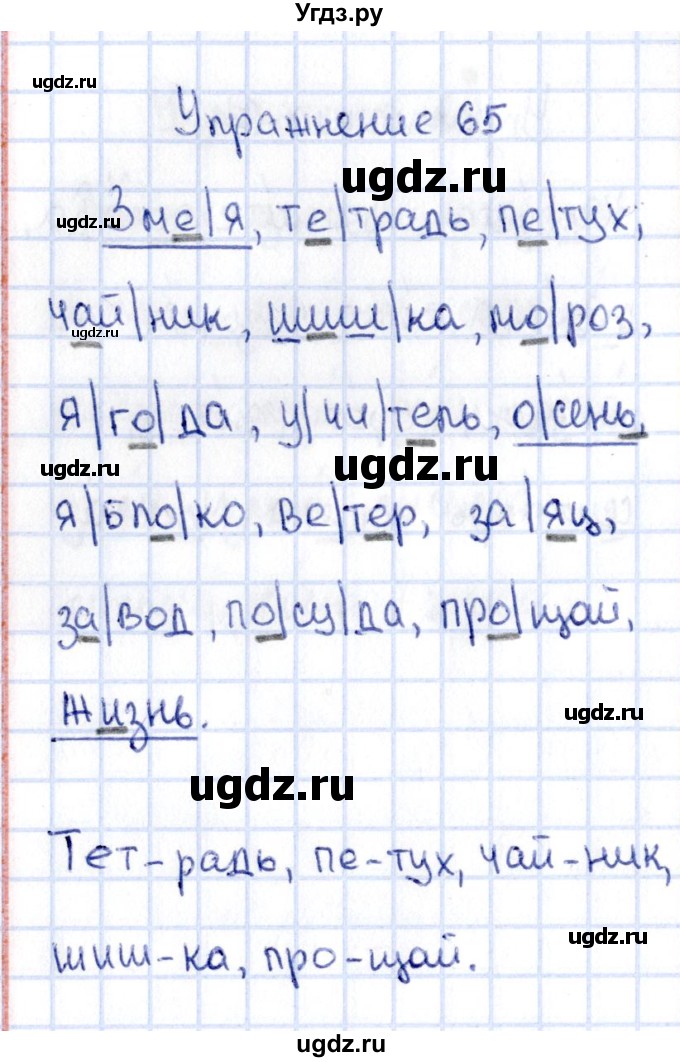 Угдз.ру
ugdz.ru
Упражнение 65
ugdz.ru
ugdz.ru
Зме|я, те|традь, пе|тух,
ugdz.ru
чай|ник, шиш|ка, мо|роз,
я|го|да, у|чи|тель, о|сень,
ugdz.ru
ugdz.ru
я|бло|ко, ве|тер, за|яц,
ugdz.ru
за|вод, по|су|да, про|щай,
жизнь.
ugdz.ru
ugdz.ru
Тет-радь, пе-тух, чай-ник,
шиш-ка, про-щай.
ugdz.ru
ugdz.ru